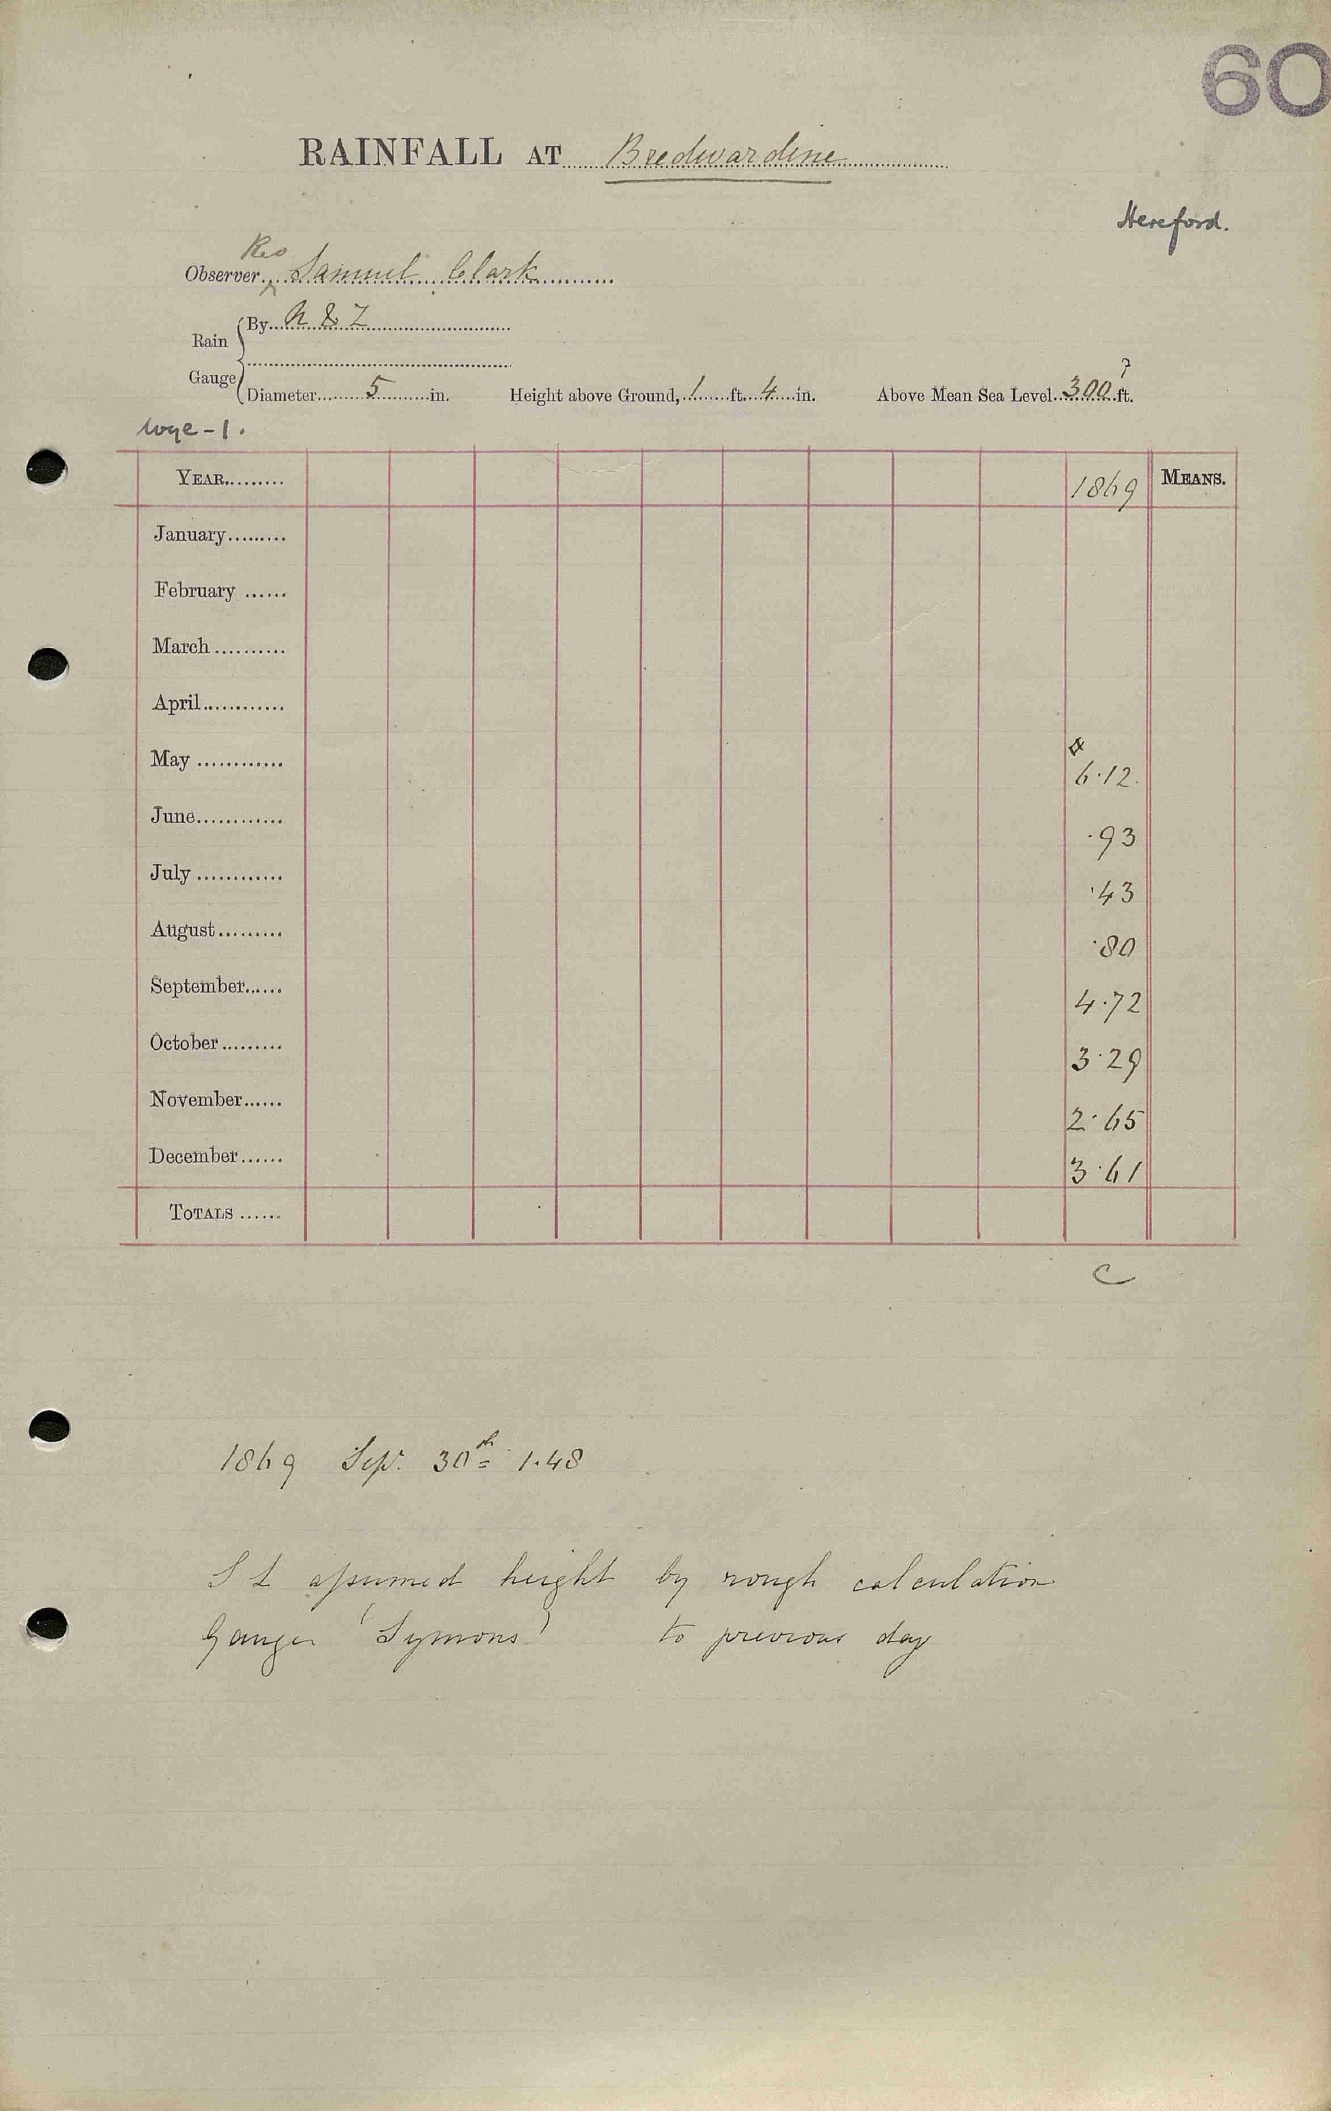 60
RAINFALL AT Bredwardine
Hereford.
Rev
Observer Samuel Clark
Rain Gauge
By N & Z
Diameter 5 in. Height above Ground, 1 ft. 4 in. Above Mean Sea Level 300 ? ft.
Wye - 1.
YEAR 1869 MEANS.
January
February
March
April
May 6.12
June .93
July .43
August .80
September 4.72
October 3.29
November 2.65
December 3.61
TOTALS
C
1869 Sep. 30th 1.48
S L assumed height by rough calculation
Gauge 'Symons' to previous day